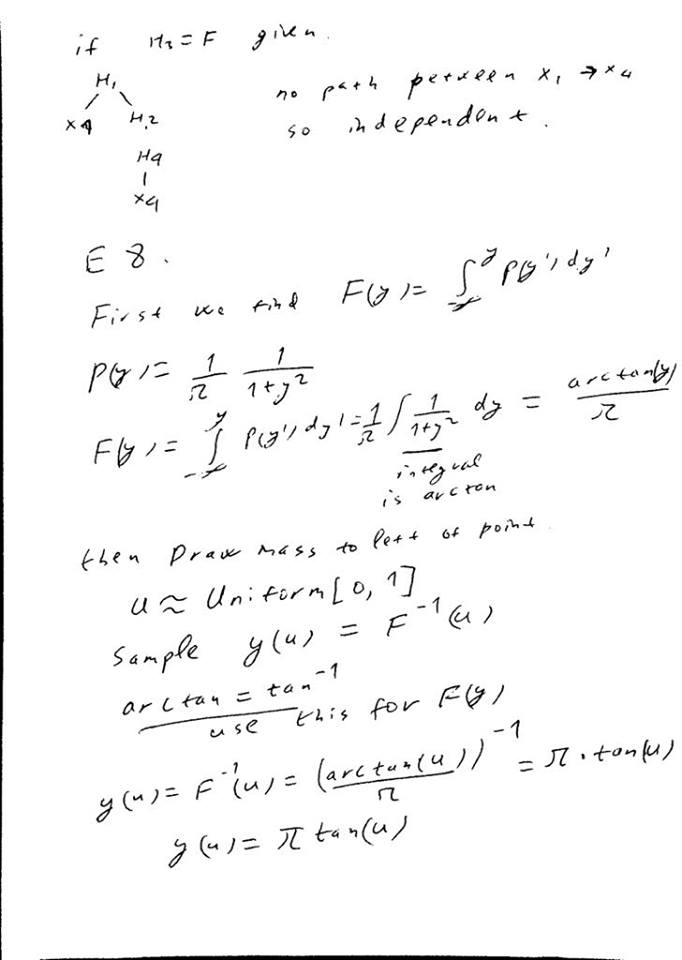 if H3 = F given.
H1
X1 H2
H4
X4
no path between x1 → x4
so independent.
E 8.
First we find F(y) = ∫_{-∞}^{y} P(y') dy'
P(y) = 1/π 1/(1+y²)
F(y) = ∫_{-∞}^{y} P(y') dy' = 1/π ∫ 1/(1+y²) dy = arctan(y)/π
integral
is arctan
then Draw mass to left of point.
u ≈ Uniform[0, 1]
Sample y(u) = F⁻¹(u)
arctan = tan⁻¹
use this for F(y)
y(u) = F⁻¹(u) = (arctan(u)/π)⁻¹ = π · tan(u)
y(u) = π tan(u)